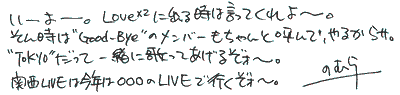 いーよー。Love×2に出る時は言ってくれよ〜。
そん時は"Good-Bye"のメンバーもちゃんと呼んで、やるからサ。
"TOKYO"だって一緒に歌ってあげるぞォ〜。
関西LIVEは今年は000のLIVEで行くぞ〜。
のむら